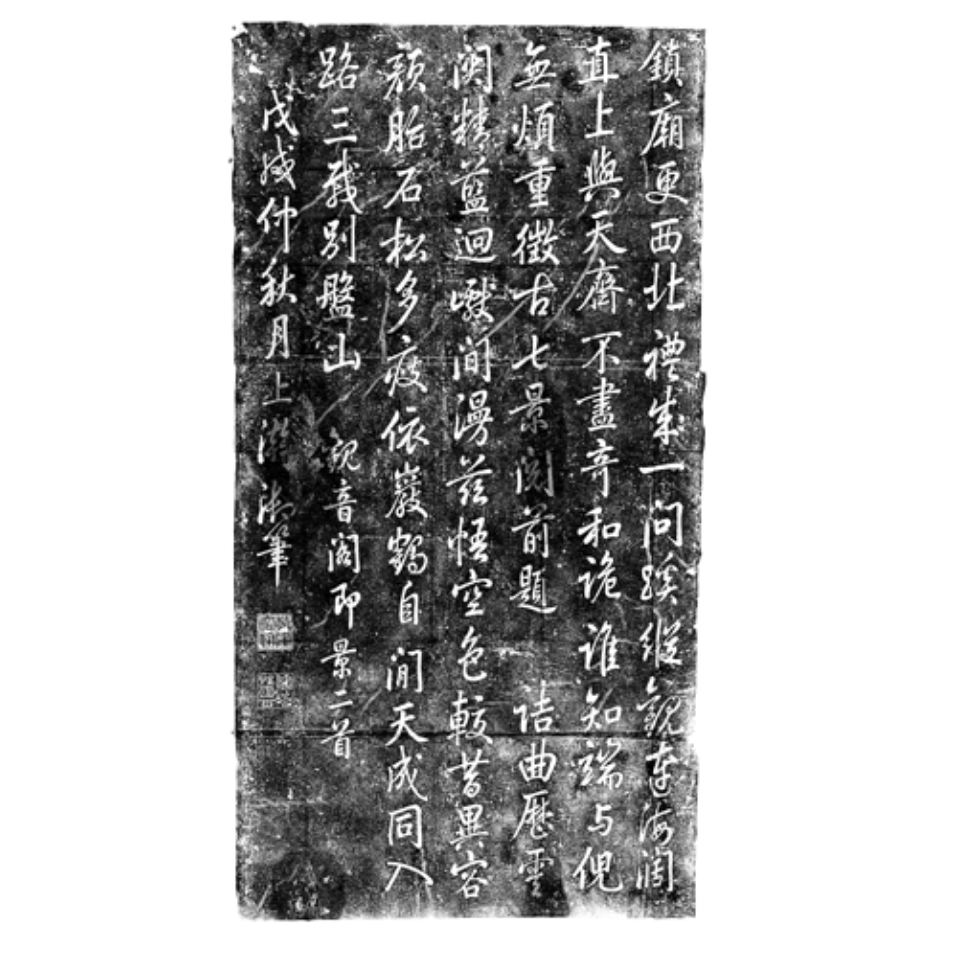 鎮廟更西北禮成一問蹊縱觀連海闊
直上與天齊不盡奇和詭誰知端与倪
無煩重徵古七景閣前題 詰曲歷雲
關精藍迴巘間漫茲悟空色較昔異容
顏胎石松多瘦依巖鶴自閒天成同入
路三載別盤山 觀音閣即景二首
戊戌仲秋月上澣御筆